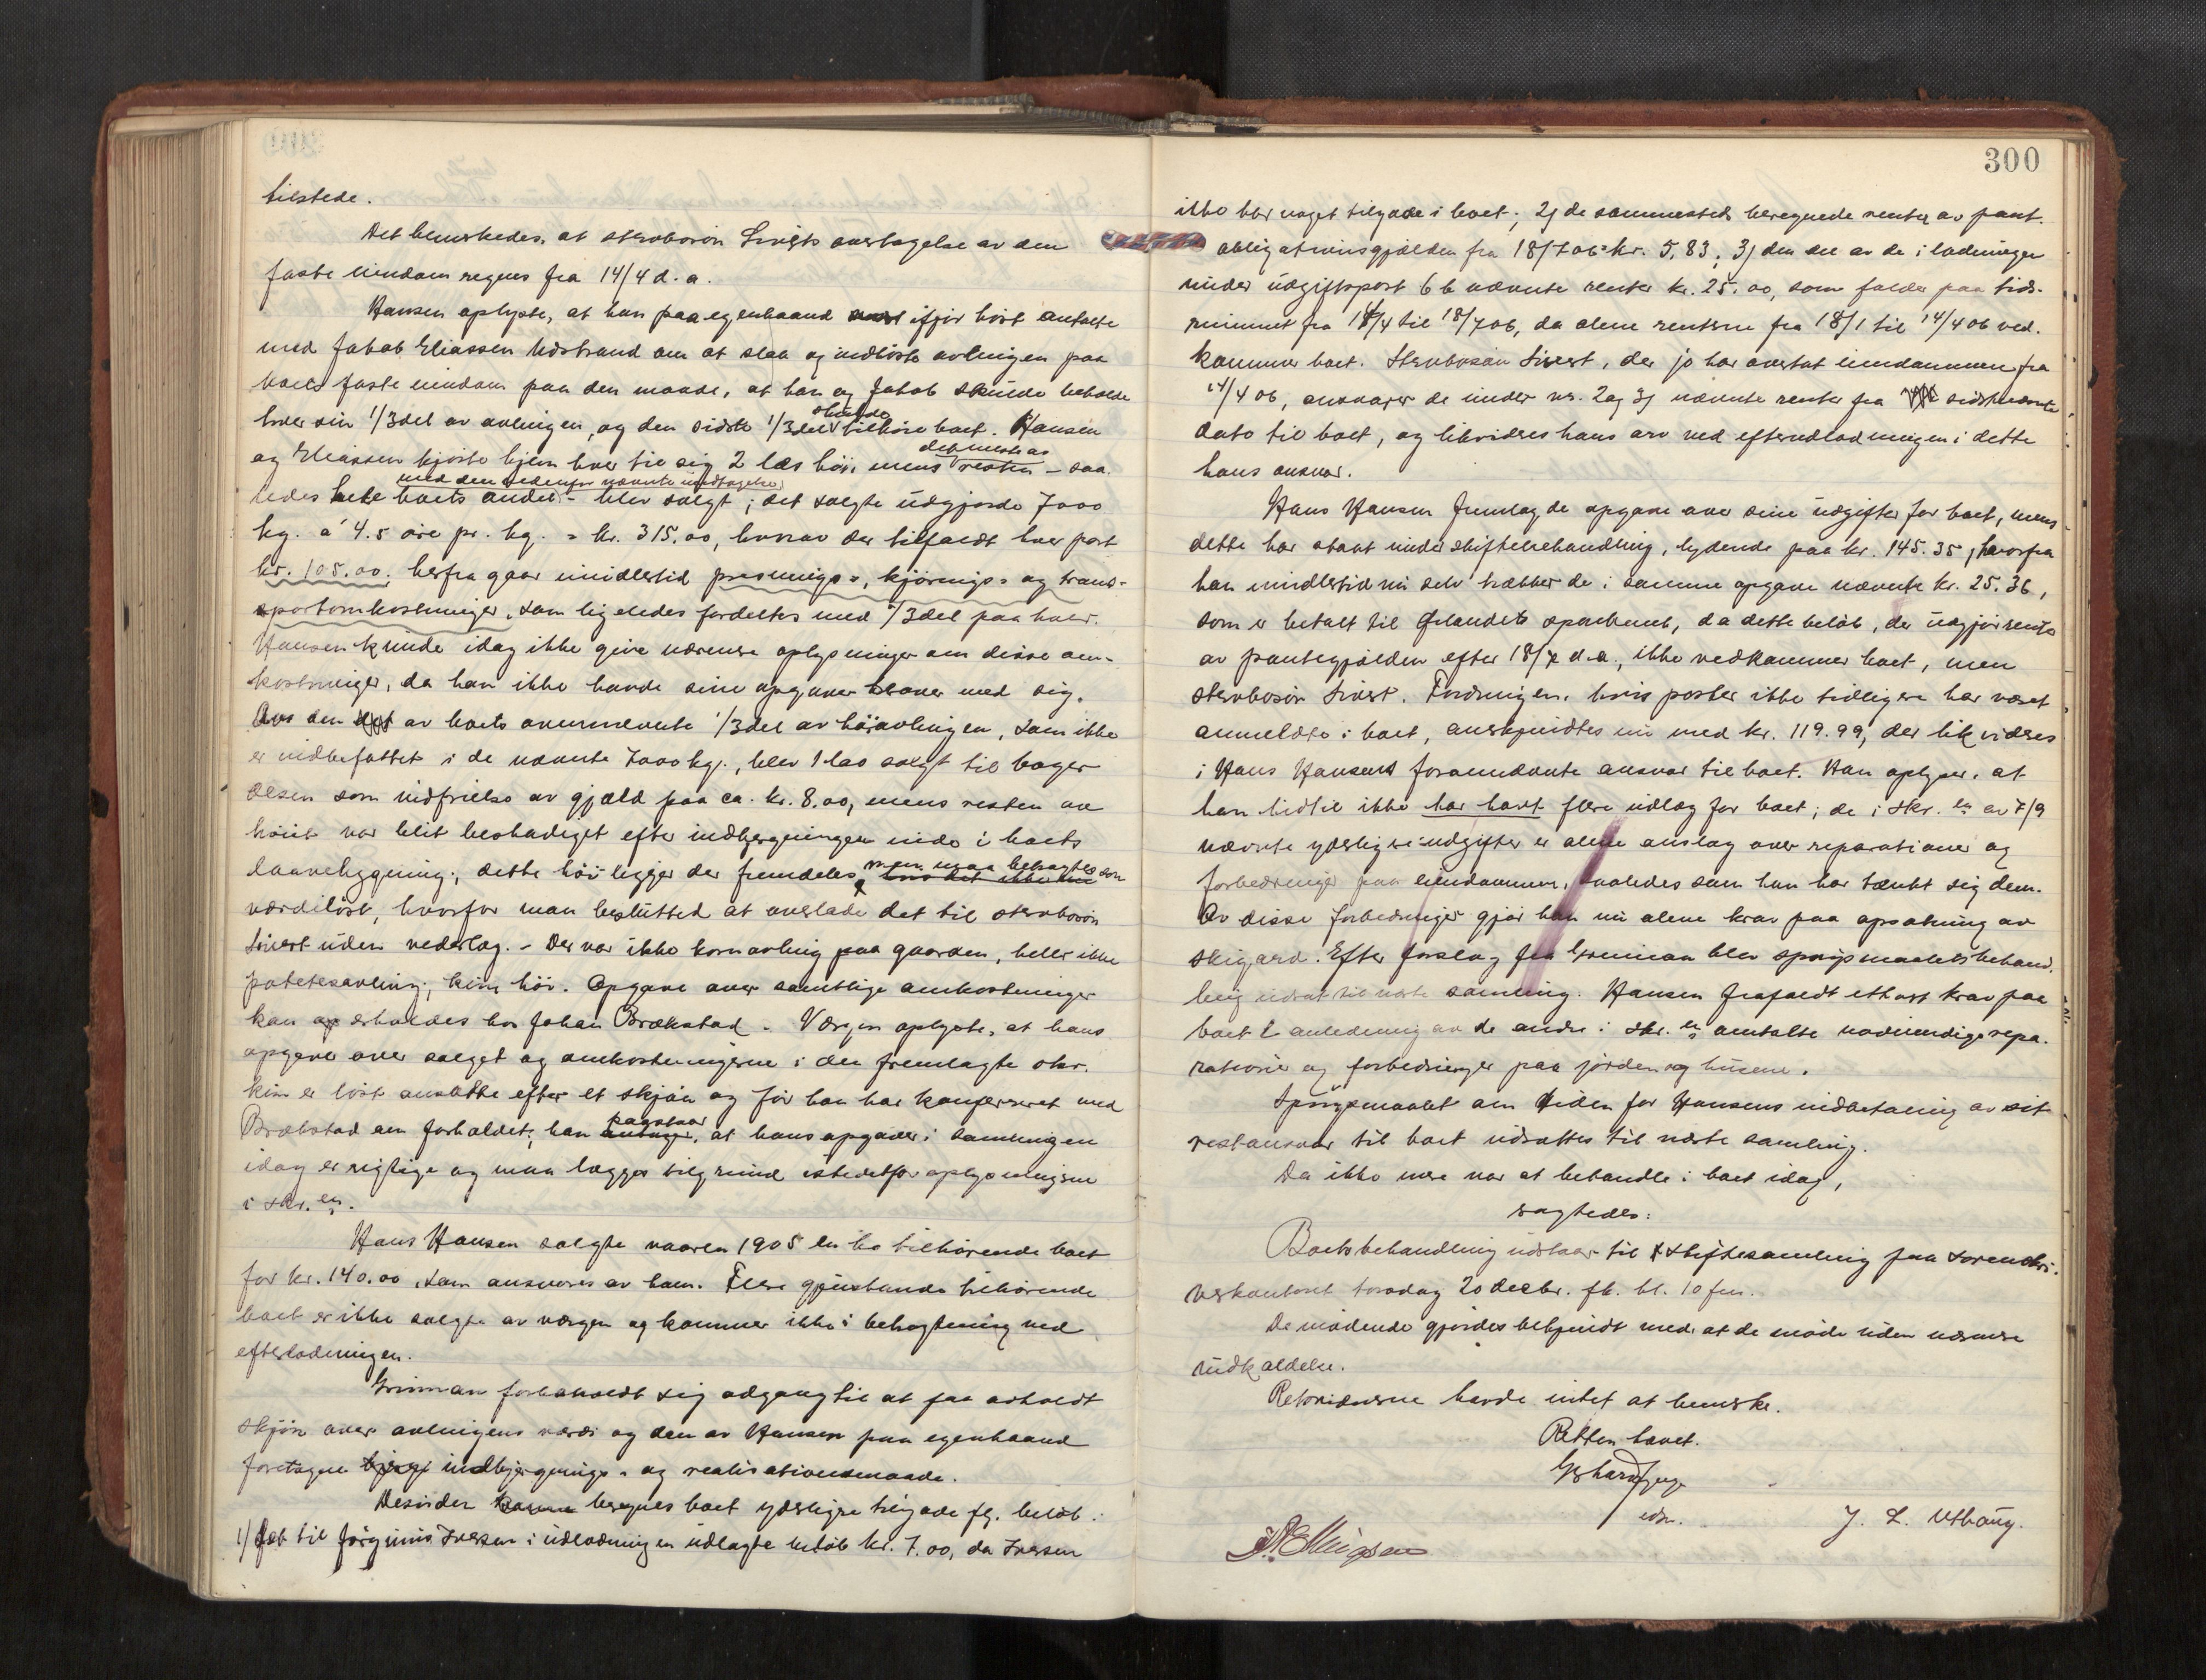 tilstede.
Det bemerkedes, at stervbosøn Siverts overtagelse av den
faste eiendom regnes fra 14/4 d. a.
Hansen oplyste, at han paa egenhaand ifjor høst avtalte
med Jakob Eliassen Udstrand om at slaa og indhøste avlingen paa
boets faste eiendom paa den maade, at han og Jakob skulde beholde
hver sin 1/3del av avlingen, og den sidste 1/3del skulde tilhøre boet. Hansen
og Eliassen kjørte hjem hver til sig 2 læs høi, mens det meste av resten - saa-
ledes hele boets andel med den nedenfor nævnte undtagelse - blev solgt; det solgte udgjorde 7000
kg. à 4.5 øre pr. kg. = kr. 315.00, hvorav der tilfaldt hver part
kr. 105.00; herfra gaar imidlertid presnings-, kjørings- og trans-
portomkostninger, som ligeledes fordeltes med 1/3del paa hver.
Hansen kunde idag ikke give nærmere oplysninger om disse om-
kostninger, da han ikke havde sine opgaver herover med sig.
Av den av boets ovennævnte 1/3del av høiavlingen, som ikke
er indbefattet i de nævnte 7000 kg., blev 1 læs solgt til bager
Olsen som indfrielse av gjæld paa ca. kr. 8.00, mens resten av
høiet var blit beskadiget efter indbjergningen inde i boets
laavebygning; dette høi ligger der fremdeles, men maa betragtes som
værdiløst, hvorfor man beslutted at overlade det til stervbosøn
Sivert uden vederlag. - Der var ikke kornavling paa gaarden, heller ikke
potetesavling; kun høi. Opgave over samtlige omkostninger
kan erholdes hos Johan Brækstad. - Værgen oplyste, at hans
opgaver over salget og omkostningerne i den fremlagte skr.
kun er løst ansatte efter et skjøn og før han har konfereret med
Brækstad om forholdet; han paastaar, at hans opgaver i samlingen
idag er rigtige og maa lægges tilgrund istedetfor oplysningerne
i skr.en.
Hans Hansen solgte vaaren 1905 en ko tilhørende boet
for kr. 140.00, som ansvares av ham. Flere gjenstande tilhørende
boet er ikke solgte av værgen og kommer ikke i betragtning ved
efterlodningen.
Grinman forbeholdt sig adgang til at faa avholdt
skjøn over avlingens værdi og den av Hansen paa egenhaand
foretagne indbjergnings- og realisationsmaade.
Desuden beregnes boet yderligere tilgode flg. beløb:
1) Det til Jørginus Iversen i udlodningen udlagte beløb kr. 7.00, da Iversen
300
ikke har noget tilgode i boet; 2) de sammesteds beregnede renter av pant-
obligationsgjælden fra 18/7 06 = kr. 5,83; 3) den del av de i lodningen
under udgiftspost 6 b nævnte renter kr. 25.00, som falder paa tids-
rummet fra 14/4 til 18/7 06, da alene renterne fra 18/1 til 14/4 06 ved-
kommer boet. Stervbosøn Sivert, der jo har overtat eiendommen fra
14/4 06, ansvarer de under nr. 2 og 3) nævnte renter fra sidstnævnte
dato til boet, og likvideres hans arv ved efterudlodningen i dette
hans ansvar.
Hans Hansen fremlagde opgave over sine udgifter for boet, mens
dette har staat under skiftebehandling, lydende paa kr. 145.35, hvorfra
han imidlertid nu selv trækker de i samme opgave nævnte kr. 25.36,
som er betalt til Ørlandets sparebank, da dette beløb, der udgjør renter
av pantegjælden efter 18/7 d. a., ikke vedkommer boet, men
stervbosøn Sivert. Fordringen, hvis poster ikke tidligere har været
anmeldte i boet, anerkjendtes nu med kr. 119.99, der likvideres
i Hans Hansens forannævnte ansvar til boet. Han oplyser, at
han hidtil ikke har havt flere udlæg for boet; de i skr.en av 7/9
nævnte yderligere udgifter er alene anslag over reparationer og
forbedringer paa eiendommen, saaledes som han har tænkt sig dem.
Av disse forbedringer gjør han nu alene krav paa opsætning av
skigard. Efter forslag fra Grinman blev spørgsmaalets behand-
ling udsat til næste samling. Hansen frafaldt ethvert krav paa
boet i anledning av de andre i skr.en omtalte nødvendige repa-
rationer og forbedringer paa jorden og husene.
Spørgsmaalet om tiden for Hansens indbetaling av sit
restansvar til boet udsættes til næste samling.
Da ikke mere var at behandle i boet idag,
vagtedes:
Boets behandling udstaar til skiftesamling paa sorenskri-
verkontoret torsdag 20 decbr. fk. kl. 10 fm.
De mødende gjordes bekjendt med at de møde uden nærmere
indkaldelse.
Retsvidnerne havde intet at bemerke.
Retten hævet.
edsv.
J. L. Uthaug.